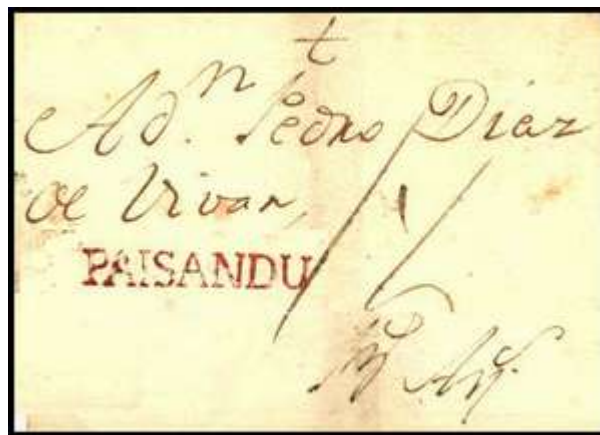 t
A d.n Pedro Diaz
de Vivar,
PAISANDU